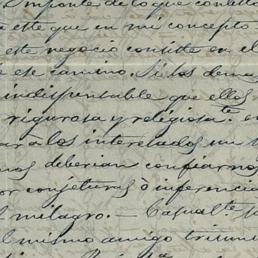 Importe de lo que contesta
este que en mi concepto
este negocio consiste en el
ese camino. Si los demas
indispensable que ellos
rigurosa y religiosa
a los interesados un
nos deberian confiarnos
or conjeturas ò inferencia
l milagro. — Casual.te
l mismo amigo